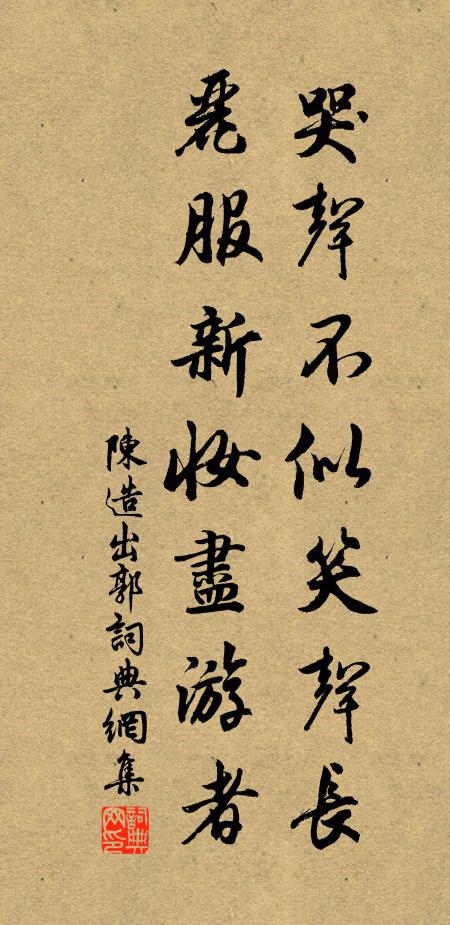 哭聲不似笑聲長
麗服新妝盡游者
陳造出郭詞典網集
詞典網印